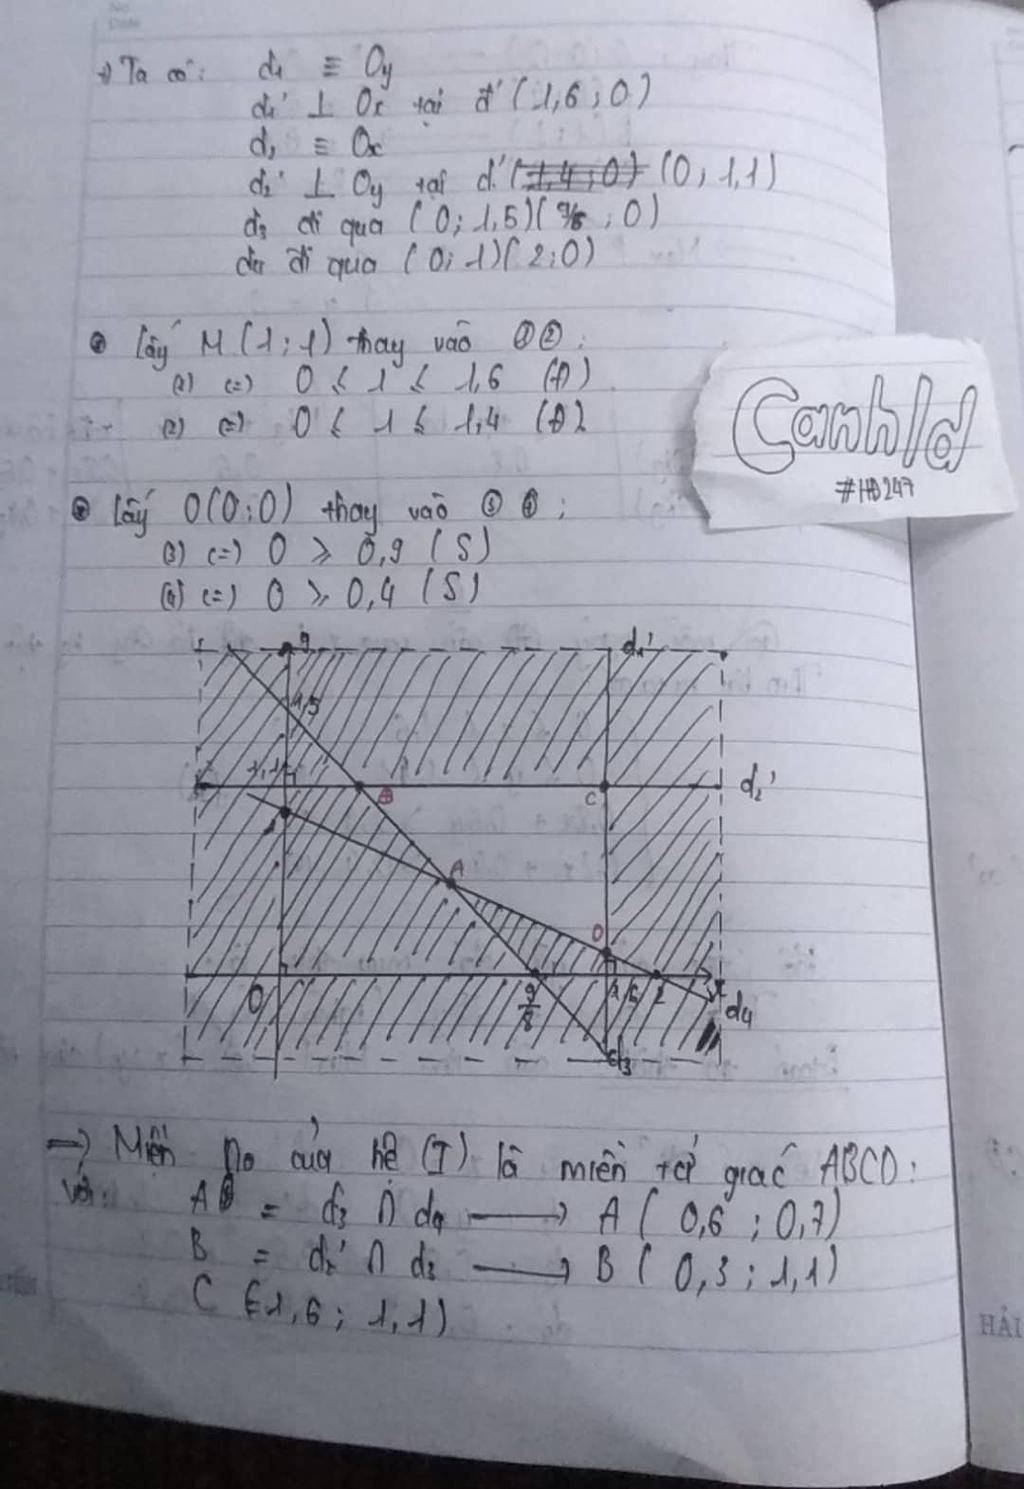 +) Ta có: d₁ ≡ Oy
d₁' ⊥ Ox tại d' (1,6 ; 0)
d₂ ≡ Ox
d₂' ⊥ Oy tại d' (1,4 ; 0) (0 ; 1,1)
d₃ đi qua (0 ; 1,5) (9/8 ; 0)
d₄ đi qua (0 ; 1) (2 ; 0)
Lấy M (1 ; 1) thay vào ① ② :
(1) (=) 0 ≤ 1 ≤ 1,6 (Đ)
(2) (=) 0 ≤ 1 ≤ 1,4 (Đ)
CanhId
#HD247
Lấy O (0 ; 0) thay vào ③ ④ ;
(3) (=) 0 ≥ 0,9 (S)
(4) (=) 0 ≥ 0,4 (S)
y d₁'
1,5
1,1 d₂'
B C
1
A
D
O 9/8 1,6 2 x
d₄
d₃
=> Miền no của hệ (I) là miền tứ giác ABCD :
với: A = d₃ ∩ d₄ → A ( 0,6 ; 0,7)
B = d₂' ∩ d₃ → B ( 0,3 ; 1,1)
C (1,6 ; 1,1)
HẢI